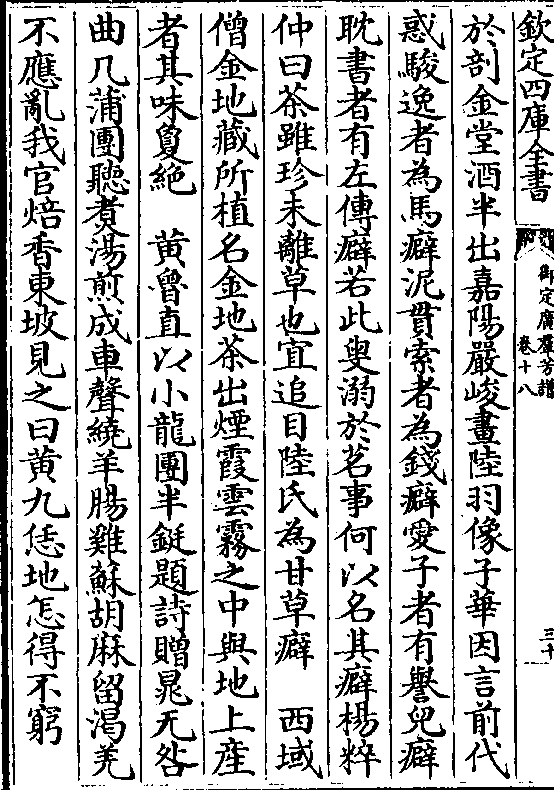 欽定四庫全書
御定廣羣芳譜
卷十八
三十
於剖金堂酒半出嘉陽嚴峻畫陸羽像子華因言前代
惑駿逸者為馬癖泥貫索者為錢癖愛子者有譽兒癖
耽書者有左傳癖若此叟溺於茗事何以名其癖楊粹
仲曰茶雖珍未離草也宜追目陸氏為甘草癖　西域
僧金地藏所植名金地茶出煙霞雲霧之中與地上産
者其味敻絶　黄魯直以小龍團半鋌題詩贈晁无咎
曲几蒲團聽煑湯煎成車聲繞羊腸雞蘇胡麻留渴羌
不應亂我官焙香東坡見之曰黄九恁地怎得不窮